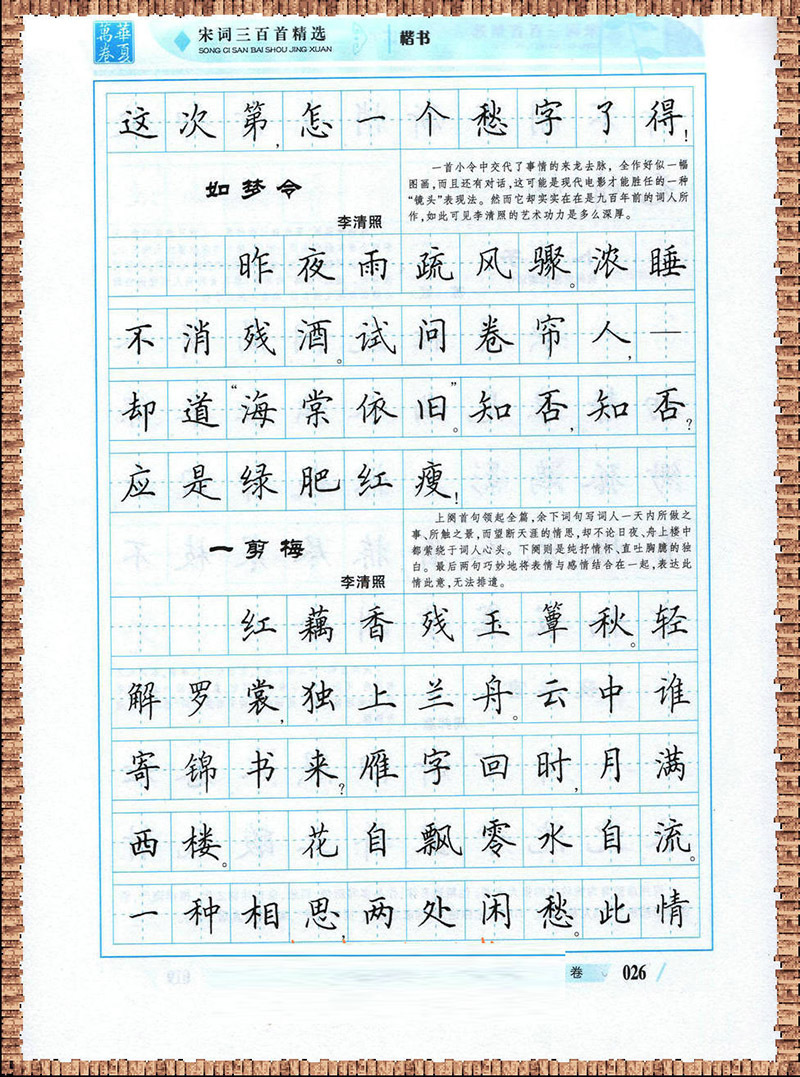 華夏
萬卷
宋词三百首精选
SONG CI SAN BAI SHOU JING XUAN
楷书
这次第,怎一个愁字了得!
如梦令
李清照
一首小令中交代了事情的来龙去脉，全作好似一幅
图画,而且还有对话,这可能是现代电影才能胜任的一种
“镜头”表现法。然而它却实实在在是九百年前的词人所
作,如此可见李清照的艺术功力是多么深厚。
昨夜雨疏风骤。浓睡
不消残酒。试问卷帘人,—
却道“海棠依旧”。知否,知否?
应是绿肥红瘦!
一剪梅
李清照
上阕首句领起全篇,余下词句写词人一天内所做之
事、所触之景,而望断天涯的情思,却不论日夜、舟上楼中
都萦绕于词人心头。下阕则是纯抒情怀、直吐胸臆的独
白。最后两句巧妙地将表情与感情结合在一起,表达此
情此意,无法排遣。
红藕香残玉簟秋。轻
解罗裳,独上兰舟。云中谁
寄锦书来?雁字回时,月满
西楼。 花自飘零水自流。
一种相思,两处闲愁。此情
卷 026